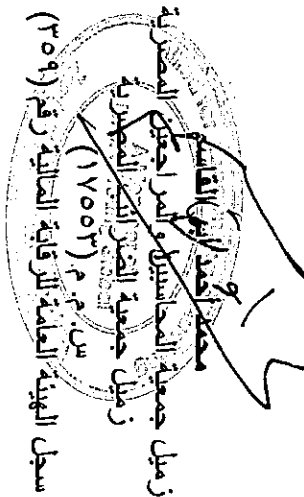 محمد أحمد أبو القاسم
زميل جمعية المحاسبين والمراجعين المصرية
زميل جمعية الضرائب المصرية
س. م. م (١٧٥٥٣)
سجل الهيئة العامة للرقابة المالية رقم (٣٥٩)